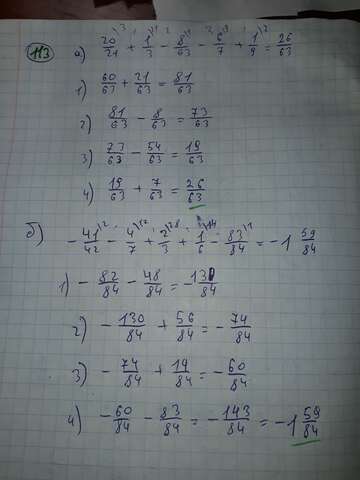 113
а) 20/21 + 1/3 - 8/63 - 6/7 + 1/9 = 26/63
1) 60/63 + 21/63 = 81/63
2) 81/63 - 8/63 = 73/63
3) 73/63 - 54/63 = 19/63
4) 19/63 + 7/63 = 26/63
б) - 41/42 - 4/7 + 2/3 + 1/6 - 83/84 = -1 59/84
1) - 82/84 - 48/84 = -130/84
2) - 130/84 + 56/84 = - 74/84
3) - 74/84 + 14/84 = - 60/84
4) - 60/84 - 83/84 = - 143/84 = -1 59/84